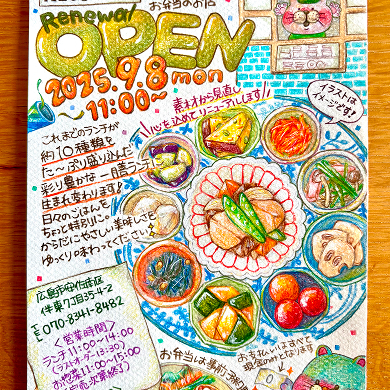 お弁当のお店
Renewal
OPEN
2025.9.8 mon
~11:00~
素材から見直し
心を込めてリニューアルします!!
イラストは
イメージです!
これまでのランチが
約10種類を
た〜ぷり盛り込んだ
彩り豊かな一膳ランチに
生まれ変わります!
日々のごはんを
ちょっと特別に。
からだにやさしい美味しさを
ゆっくり味わってください
広島市安佐南区
伴東7丁目35-4-2
TEL 070-8341-8482
<営業時間>
ランチ 11:00~14:00
(ラストオーダー13:30)
お惣菜 11:00~15:00
お支払いはすべて
現金onlyとなります
お弁当は事前予約